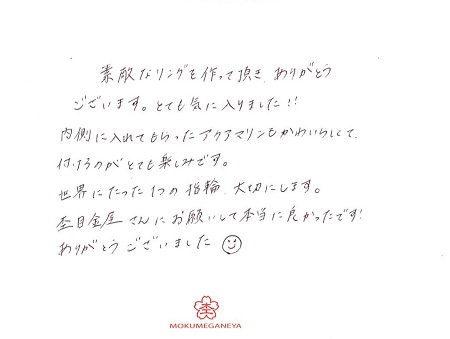 素敵なリングを作って頂き、ありがとう
ございます。とても気に入りました!!
内側に入れてもらったアクアマリンもかわいらしくて、
付けるのがとても楽しみです。
世界にたった1つの指輪、大切にします。
杢目金屋さんにお願いして本当に良かったです!
ありがとうございました
杢
MOKUMEGANEYA